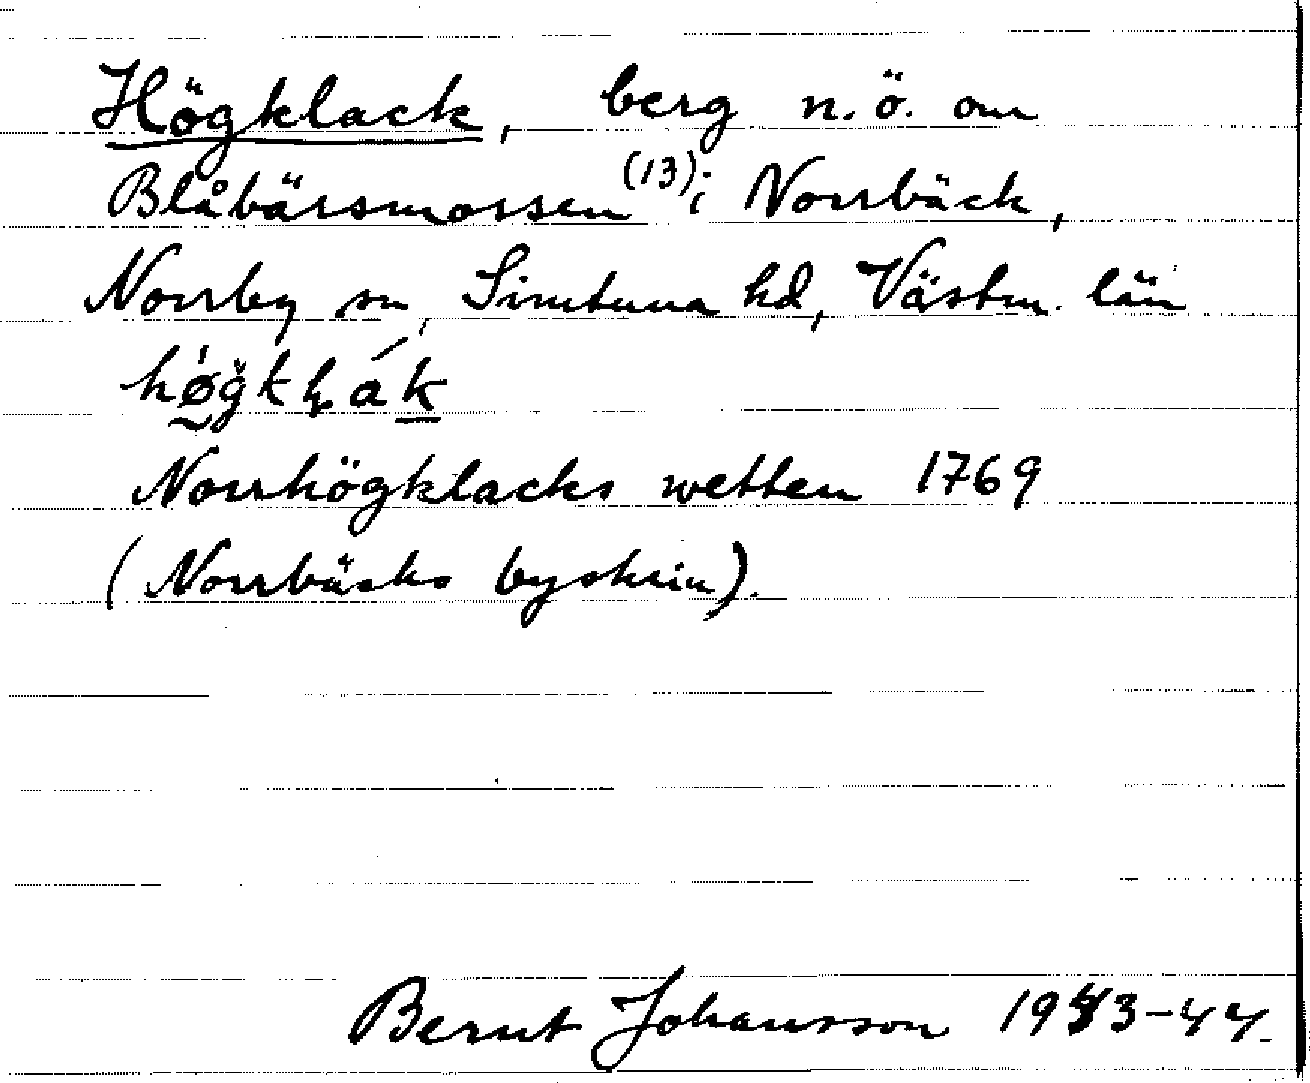 Högklack, berg n.ö. om
Blåbärsmossen (13) i Norrbäck,
Norrby sn, Simtuna hd, Västm. län
Norrhögklacks wetten 1769
(Norrbäcks byskrin).
Bernt Johansson 1943-44.